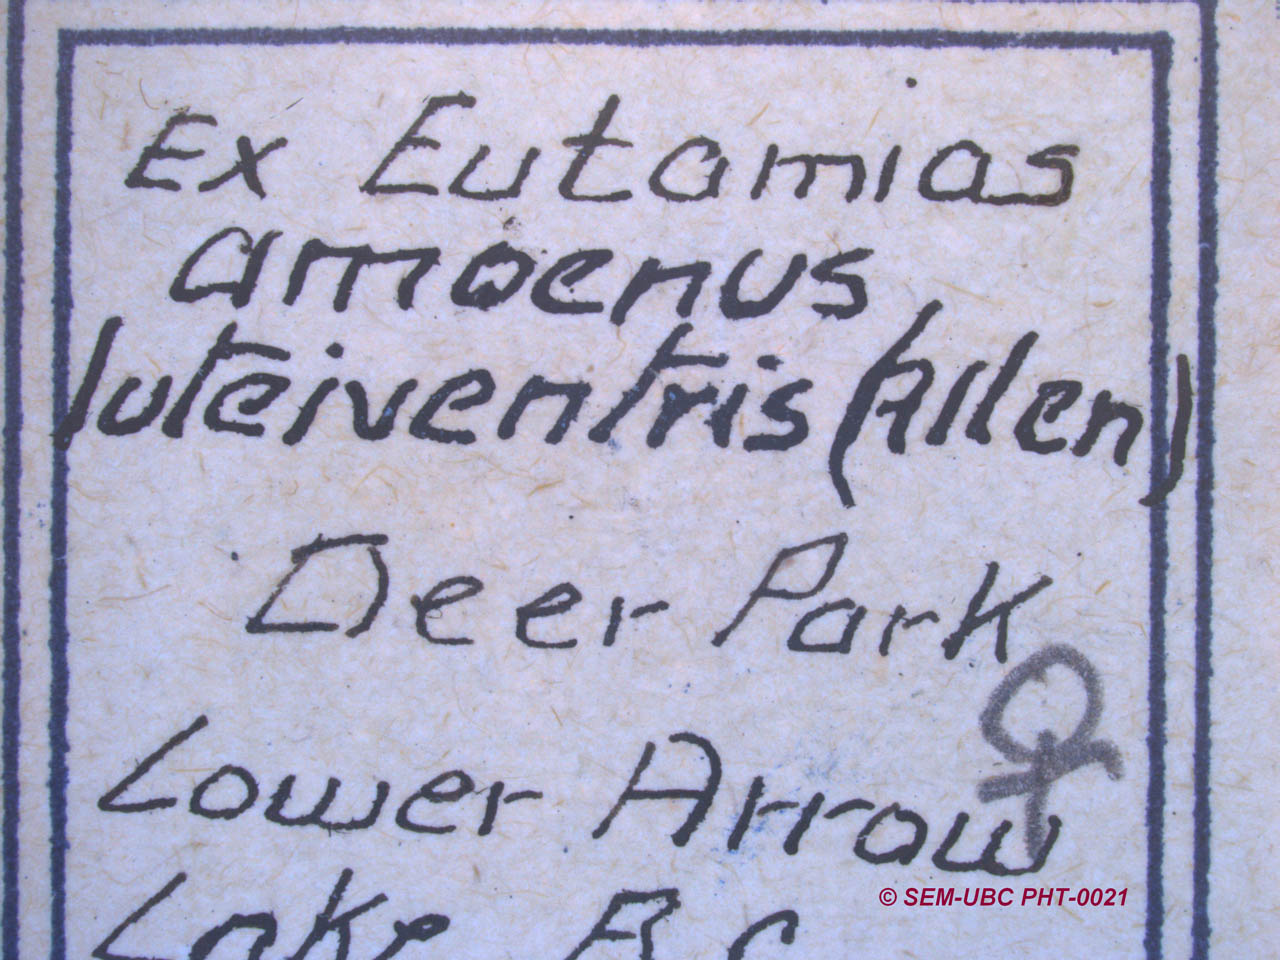 Ex Eutamias
amoenus
luteiventris (Allen)
Deer Park
♀
Lower Arrow
Lake B.C.
© SEM-UBC PHT-0021